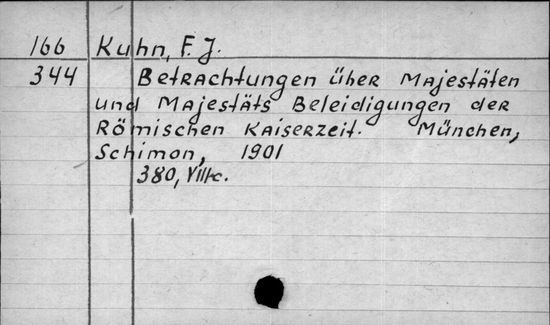 166 Kuhn, F. J.
344 Betrachtungen über Majestäten
und Majestäts Beleidigungen der
Römischen Kaiserzeit. München,
Schimon, 1901
380, VIII c.